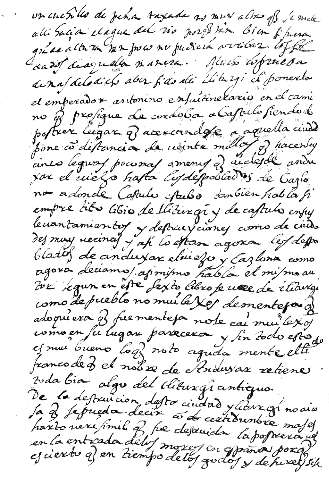 un cuchillo de peña taxada no muy alta q se mete
alli hacia el agua del rio
de aquella manera
mas de lo dicho aber sido alli illiturgi el ponerlo
el emperador antonino en su itinerario en el cami
no q prosigue de cordoba a castulo siendo el
postrer lugar q acercandose a aquella ciudad
pone con distancia de veinte millas q hacen sus
cinco leguas poco mas a menos q ai desde andu
xar el viejo hasta los despoblados de Cazlo
na adonde Castulo estubo tambien habla si
empre tito libio de illiturgi y de castulo en sus
levantamientos y destruiciones como de ciuda
des muy vecinas y asi lo estan agora los despo
blados de anduxar el viejo y cazlona como
agora deciamos asimismo habla el mismo au
tor segun en este sexto libro se vee de illiturgi
como de pueblo no mui lexos de mentesa q
adoquiera q fue mentesa no le cai mui lexos
como en su lugar parecera y sin todo esto
es mui bueno lo q noto aguda mente el
franco de q el nombre de Anduxar retiene
toda bia algo del illiturgi antiguo.
De la destruicion desta ciudad yliturgi no ai co
sa q se pueda decir con certidumbre mas es
harto verisimil q fue destruida la postrera vez
en la entrada de los moros en españa porq
es cierto q en tiempo de los godos y de